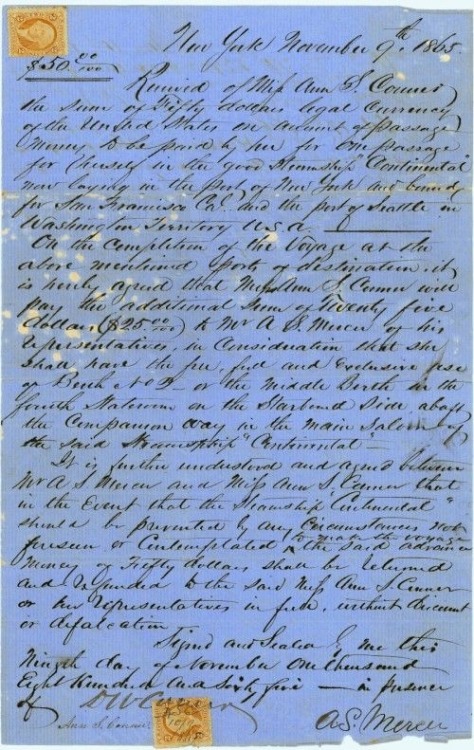 New York November 9th. 1865.
$50.00/100
Received of Miss Ann S. Conner
the sum of Fifty dollars legal Currency
of the United States on account of passage
Money to be paid by her for one passage
for herself in the good Steamship Continental
now laying in the port of New York and bound
for San Francisco Cal. and the port of Seattle in
Washington Territory U.S.A.
On the Completion of the Voyage at the
above mentioned ports of destination it
is hereby agreed that Miss Ann S. Conner will
pay the additional Sum of Twenty five
dollars ($25.00/100) to Mr A S. Mercer or his
representatives in Consideration that she
shall have the free, full and Exclusive use
of Berth No 2 - or the middle Berth in the
fourth Stateroom on the Starboard Side abaft
the Companion way in the main Saloon of
the said Steamship "Continental" -
It is further understood and agreed between
Mr A S Mercer and Miss Ann S. Conner that
in the Event that the Steamship "Continental"
should be prevented by any Circumstances not
foreseen or Contemplated to make the voyage the said advance
Money of Fifty dollars shall be returned
and refunded to the said Miss Ann S. Conner
or her representatives in full, without discount
or defalcation
Signed and Sealed by me this
Ninth day of November One thousand
Eight Hundred And Sixty five — in presence
of
Ann S. Conner
A.S. Mercer